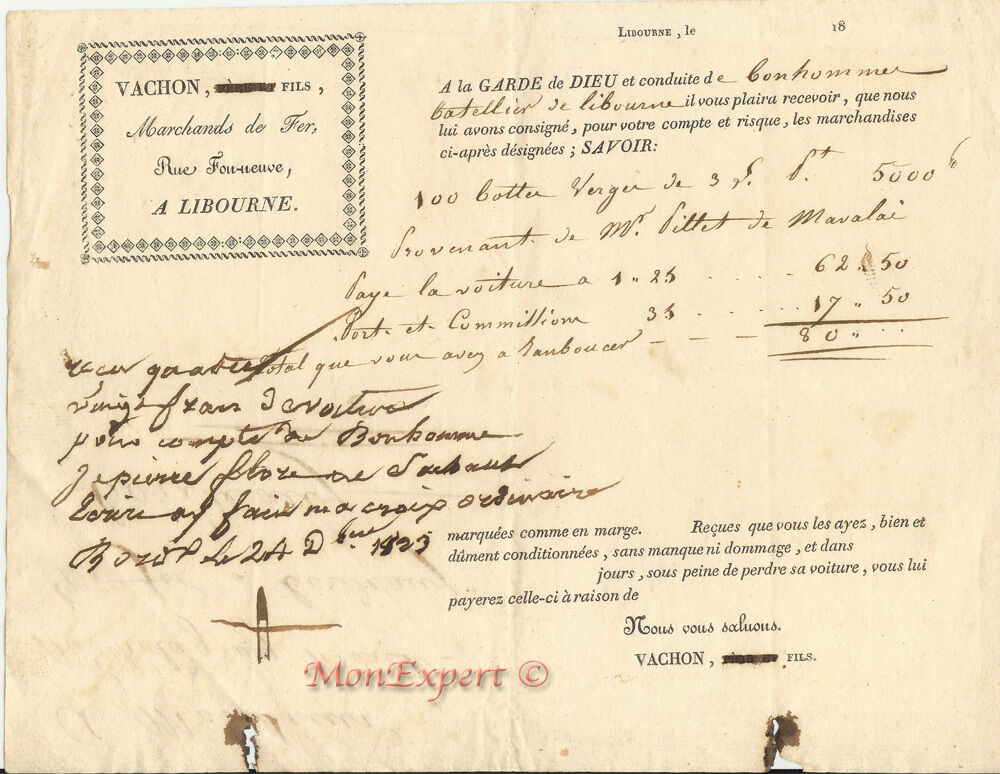 LIBOURNE, le 18
VACHON, PÈRE ET FILS,
Marchands de Fer,
Rue Fonneuve,
A LIBOURNE.
A la GARDE de DIEU et conduite de Bonhommes
batellier de libourne il vous plaira recevoir, que nous
lui avons consigné, pour votre compte et risque, les marchandises
ci-après désignées; SAVOIR:
100 Botter Verger de 3 P. Pt 5000
Provenant de Mr. Pillet de
Paye la voiture a 1 " 25 62 " 50
Port et Commission 35 17 " 50
Total que vous avez a Ranboucer 80 "
vingt fran
pour compte de Bonhomme
Je pierre
fait ma croix ordinaire
Bord le 24 Dbre 1823
marquées comme en marge. Reçues que vous les ayez, bien et
dûment conditionnées, sans manque ni dommage, et dans
jours, sous peine de perdre sa voiture, vous lui
payerez celle-ci à raison de
Nous vous saluons.
VACHON, PÈRE ET FILS.
MonExpert ©